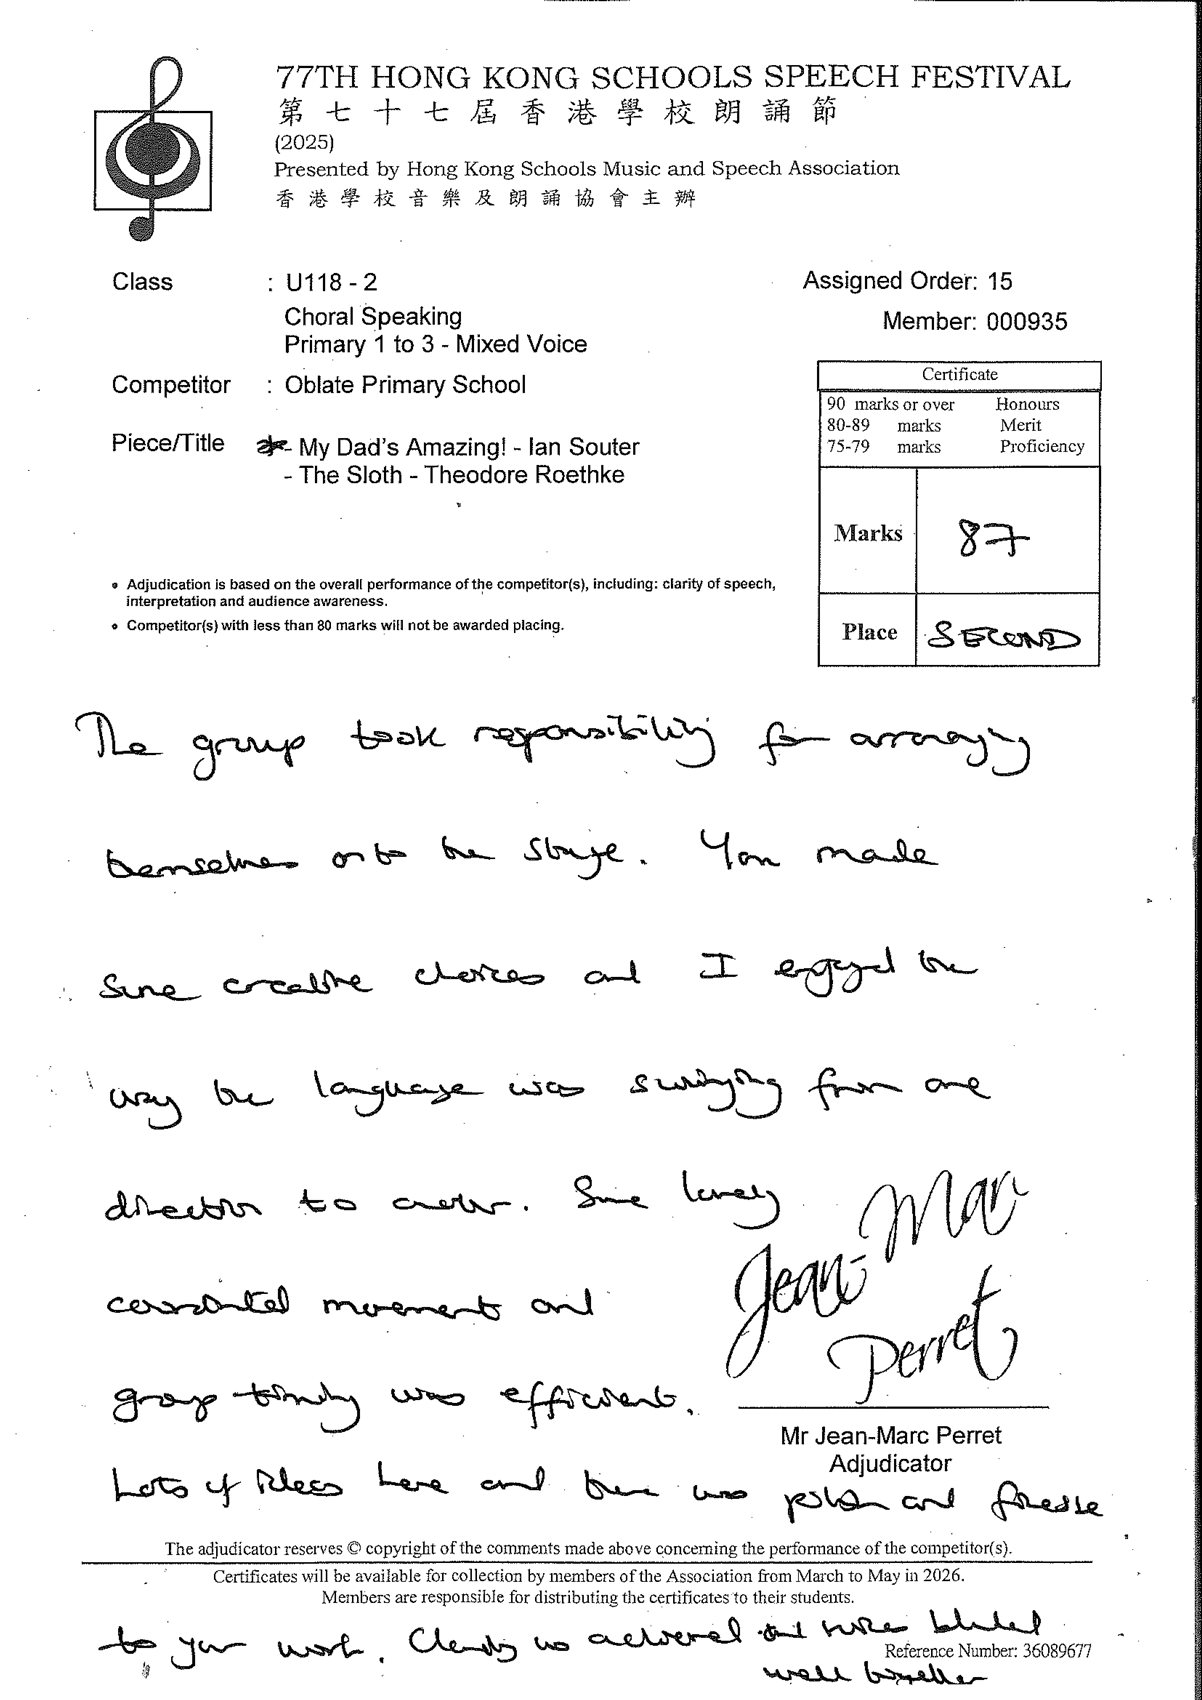 77TH HONG KONG SCHOOLS SPEECH FESTIVAL
第七十七屆香港學校朗誦節
(2025)
Presented by Hong Kong Schools Music and Speech Association
香港學校音樂及朗誦協會主辦
Class : U118 - 2
Assigned Order: 15
Choral Speaking
Member: 000935
Primary 1 to 3 - Mixed Voice
Competitor : Oblate Primary School
Piece/Title - My Dad's Amazing! - Ian Souter
- The Sloth - Theodore Roethke
Certificate
90 marks or over Honours
80-89 marks Merit
75-79 marks Proficiency
Marks 87
Place SECOND
• Adjudication is based on the overall performance of the competitor(s), including: clarity of speech,
interpretation and audience awareness.
• Competitor(s) with less than 80 marks will not be awarded placing.
The group took responsibility for arranging
themselves onto the stage. You made
some creative choices and I enjoyed the
way the language was swinging from one
direction to another. Some lovely
coordinated movements and
group timing was efficient.
Jean-Marc
Perret
Mr Jean-Marc Perret
Adjudicator
Lots of ideas here and there was polish and finesse
The adjudicator reserves © copyright of the comments made above concerning the performance of the competitor(s).
Certificates will be available for collection by members of the Association from March to May in 2026.
Members are responsible for distributing the certificates to their students.
to your work. Clarity was achieved and voices blended
Reference Number: 36089677
well together